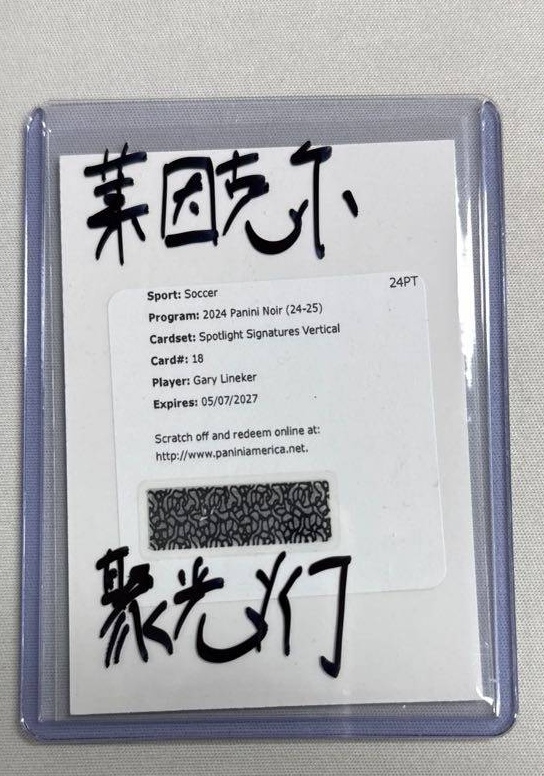 莱因克尔
24PT
Sport: Soccer
Program: 2024 Panini Noir (24-25)
Cardset: Spotlight Signatures Vertical
Card#: 18
Player: Gary Lineker
Expires: 05/07/2027
Scratch off and redeem online at:
http://www.paniniamerica.net.
聚光灯